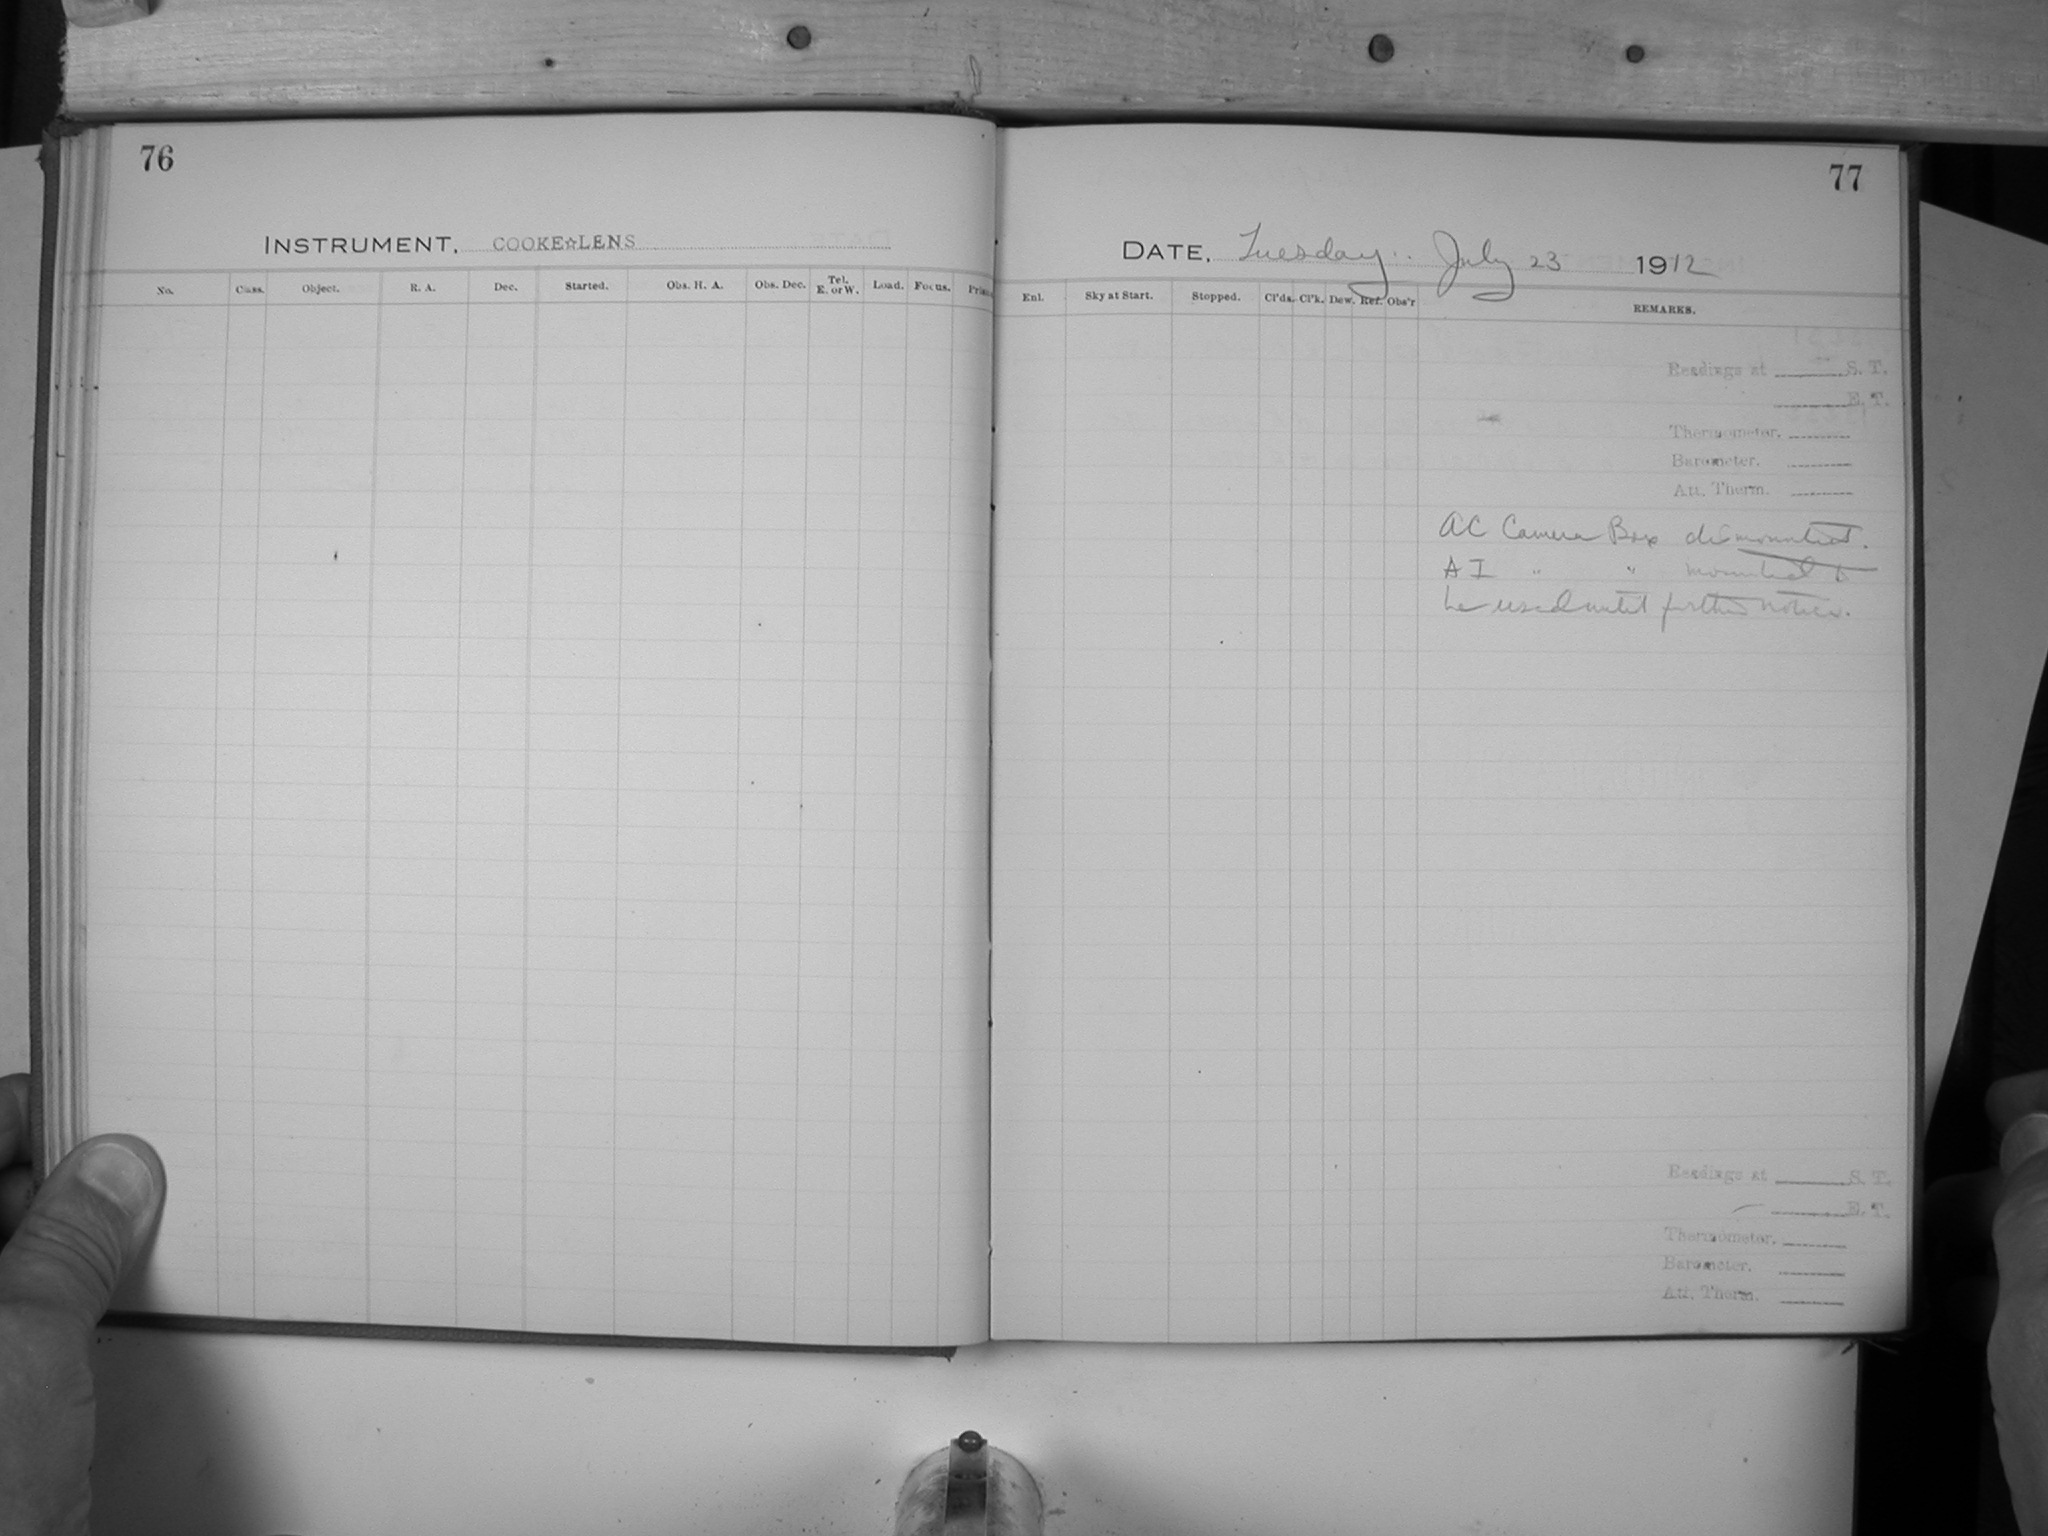 76
INSTRUMENT, COOKE☆LENS
No. Class. Object. R. A. Dec. Started. Obs. H. A. Obs. Dec. Tel. E. or W. Load. Focus.
77
DATE, Tuesday. July 23 1912
Enl. Sky at Start. Stopped. Cl'ds. Cl'k. Dew. Ref. Obs'r REMARKS.
Readings at S. T.
E. T.
Thermometer.
Barometer.
Att. Therm.
AC Camera Box dismounted.
AI " " mounted to
be used until further notice.
Readings at S. T.
E. T.
Thermometer.
Barometer.
Att. Therm.